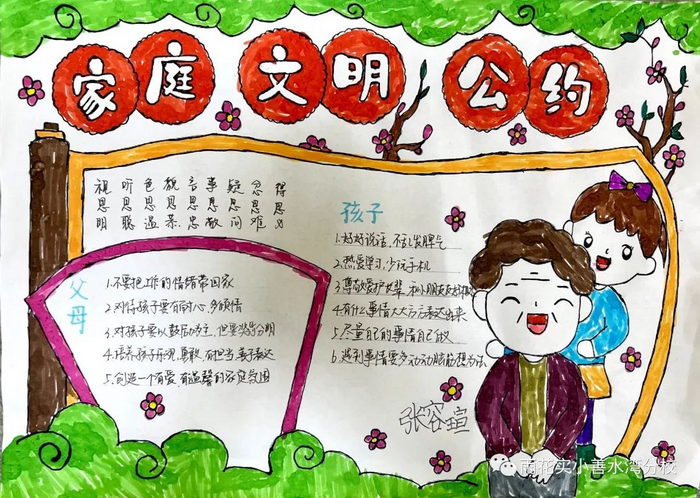 家庭文明公约
视听色貌言事疑忿得
思思思思思思思思思
明聪温恭忠敬问难义
父母
1.不要把工作的情绪带回家
2.对待孩子要有耐心,多倾情
3.对孩子要以鼓励为主,但要奖罚分明
4.培养孩子乐观,勇敢,有担当,善于表达
5.创造一个有爱,有温馨的家庭氛围
孩子
1.好好说话,不乱发脾气
2.热爱学习,少玩手机
3.尊敬爱护长辈,和小朋友友好相处
4.有什么事情大大方方表达出来
5.尽量自己的事情自己做
6.遇到事情要多动动脑筋想办法
张容瑄
雨花实小善水湾分校